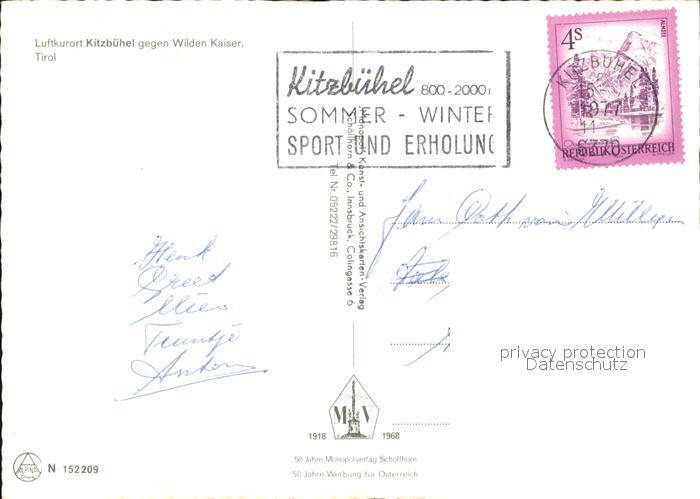 Luftkurort Kitzbühel gegen Wilden Kaiser,
Tirol
Kitzbühel 800-2000
SOMMER - WINTER
SPORT UND ERHOLUNG
4S
ALMSEE
REPUBLIK ÖSTERREICH
KITZBÜHEL
1977
11
Monopol Kunst- und Ansichtskarten-Verlag
Schöllhorn & Co., Innsbruck, Colingasse 6
Tel Nr. 05222/29816
Henk
Greet
Mies
Teuntje
Anton
privacy protection
Datenschutz
M V
1918 1968
50 Jahre Monopolverlag Schöllhorn
50 Jahre Werbung für Österreich
ALPINA
N 152209